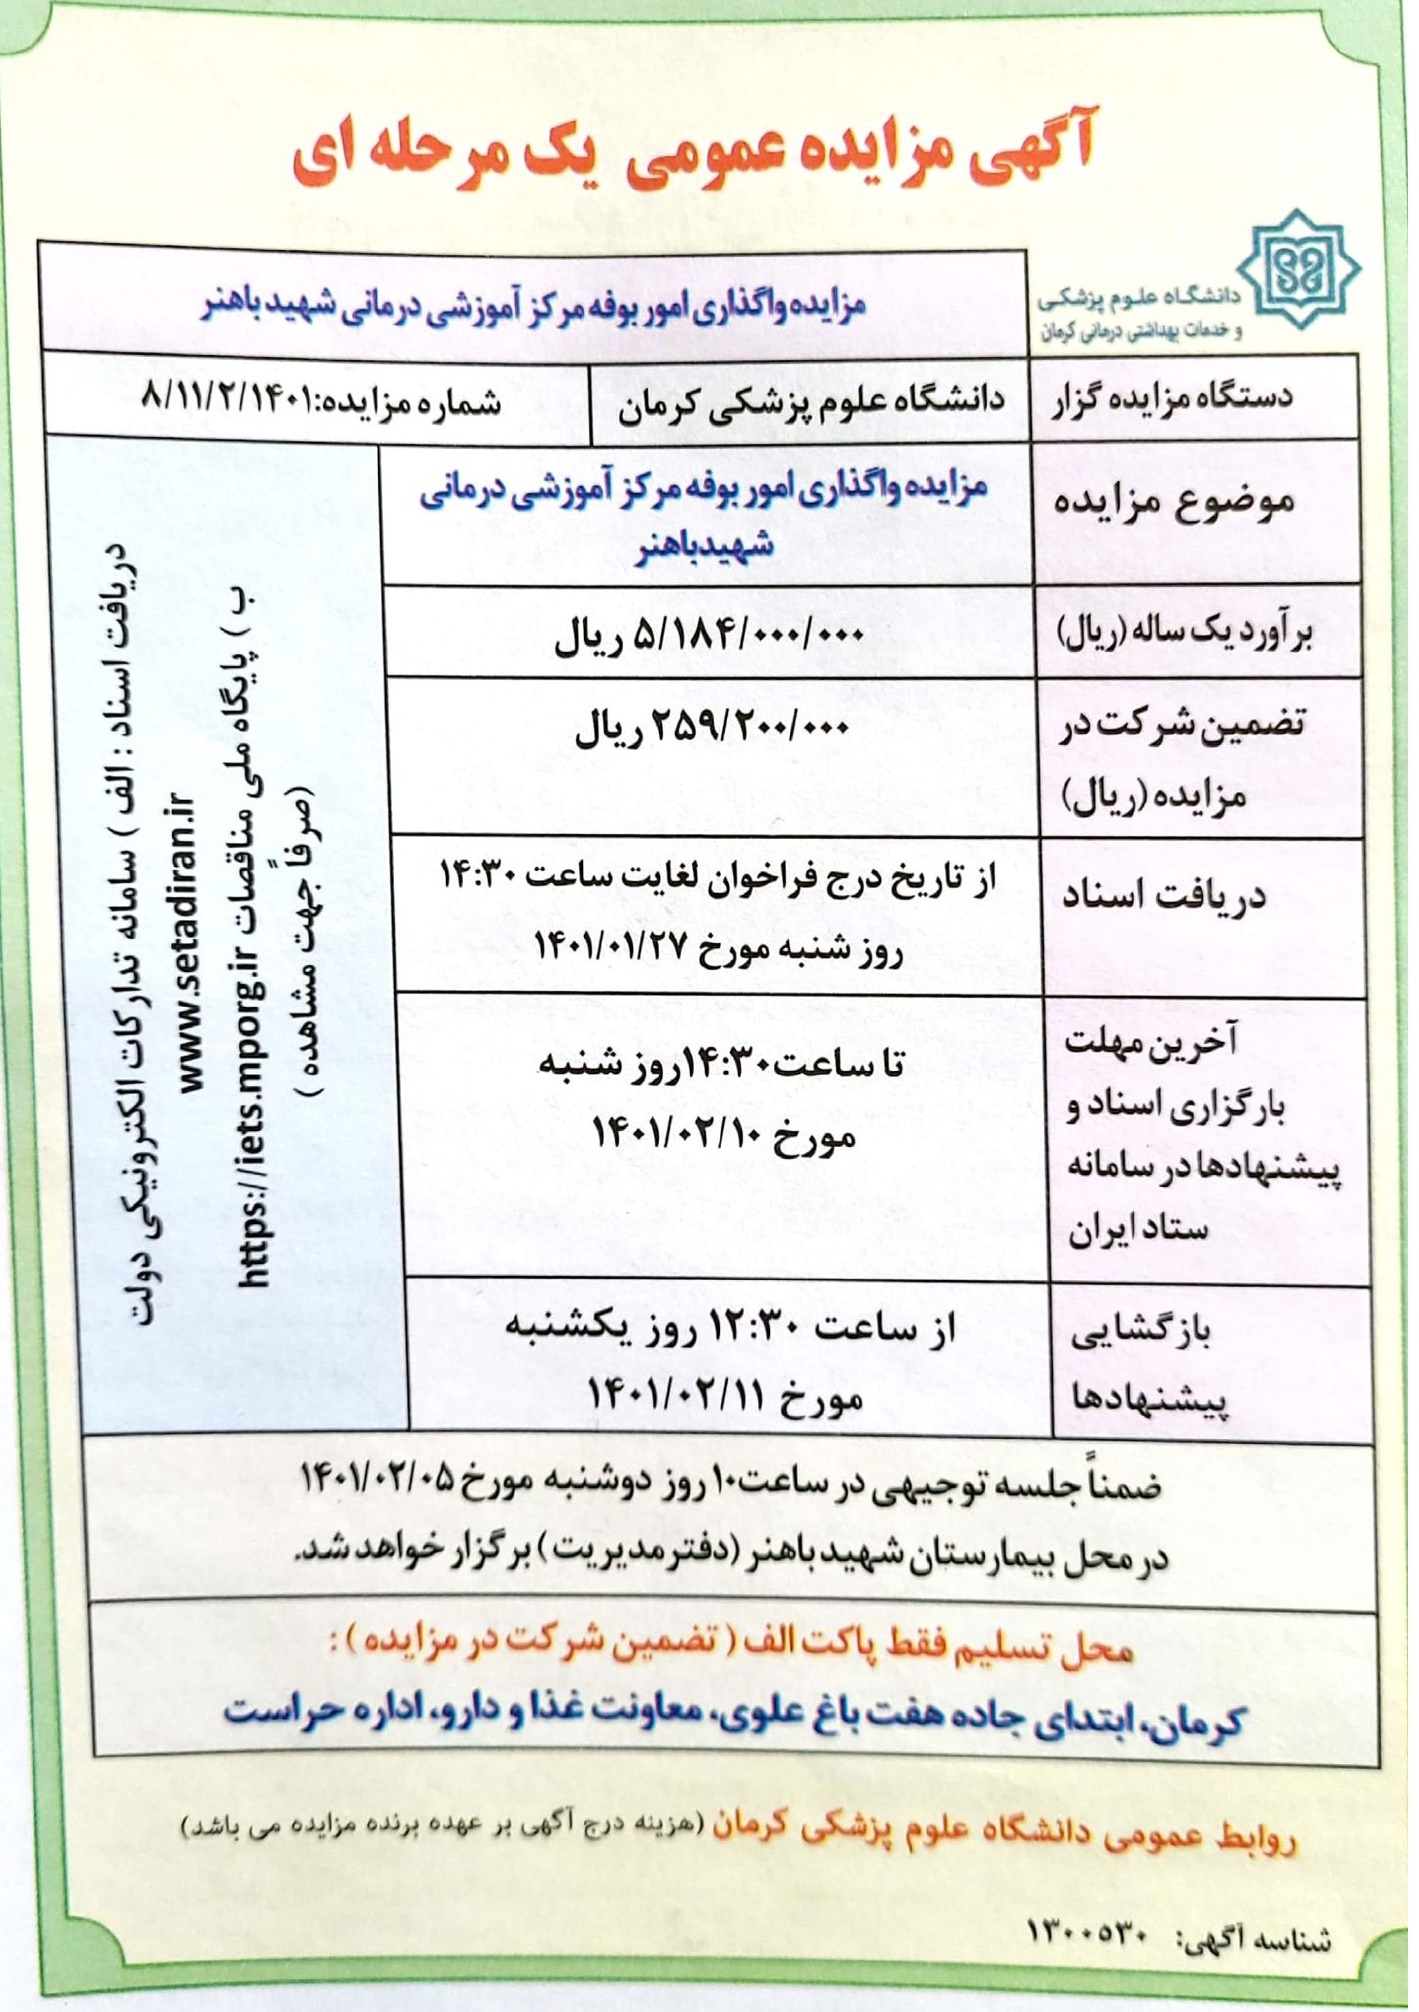 آگهی مزایده عمومی یک مرحله ای
دانشگاه علوم پزشکی
و خدمات بهداشتی درمانی کرمان
مزایده واگذاری امور بوفه مرکز آموزشی درمانی شهید باهنر
دستگاه مزایده گزار
دانشگاه علوم پزشکی کرمان
شماره مزایده:۸/۱۱/۲/۱۴۰۱
موضوع مزایده
مزایده واگذاری امور بوفه مرکز آموزشی درمانی
شهیدباهنر
برآورد یک ساله (ریال)
۵/۱۸۴/۰۰۰/۰۰۰ ریال
تضمین شرکت در
مزایده (ریال)
۲۵۹/۲۰۰/۰۰۰ ریال
دریافت اسناد
از تاریخ درج فراخوان لغایت ساعت ۱۴:۳۰
روز شنبه مورخ ۱۴۰۱/۰۱/۲۷
آخرین مهلت
بارگزاری اسناد و
پیشنهادها در سامانه
ستاد ایران
تا ساعت۱۴:۳۰روز شنبه
مورخ ۱۴۰۱/۰۲/۱۰
بازگشایی
پیشنهادها
از ساعت ۱۲:۳۰ روز یکشنبه
مورخ ۱۴۰۱/۰۲/۱۱
دریافت اسناد : الف ) سامانه تدارکات الکترونیکی دولت
www.setadiran.ir
ب ) پایگاه ملی مناقصات https://iets.mporg.ir
(صرفاً جهت مشاهده )
ضمناً جلسه توجیهی در ساعت۱۰ روز دوشنبه مورخ ۱۴۰۱/۰۲/۰۵
در محل بیمارستان شهید باهنر (دفتر مدیریت) برگزار خواهد شد.
محل تسلیم فقط پاکت الف ( تضمین شرکت در مزایده ) :
کرمان، ابتدای جاده هفت باغ علوی، معاونت غذا و دارو، اداره حراست
روابط عمومی دانشگاه علوم پزشکی کرمان (هزینه درج آگهی بر عهده برنده مزایده می باشد)
شناسه آگهی: ۱۳۰۰۵۳۰